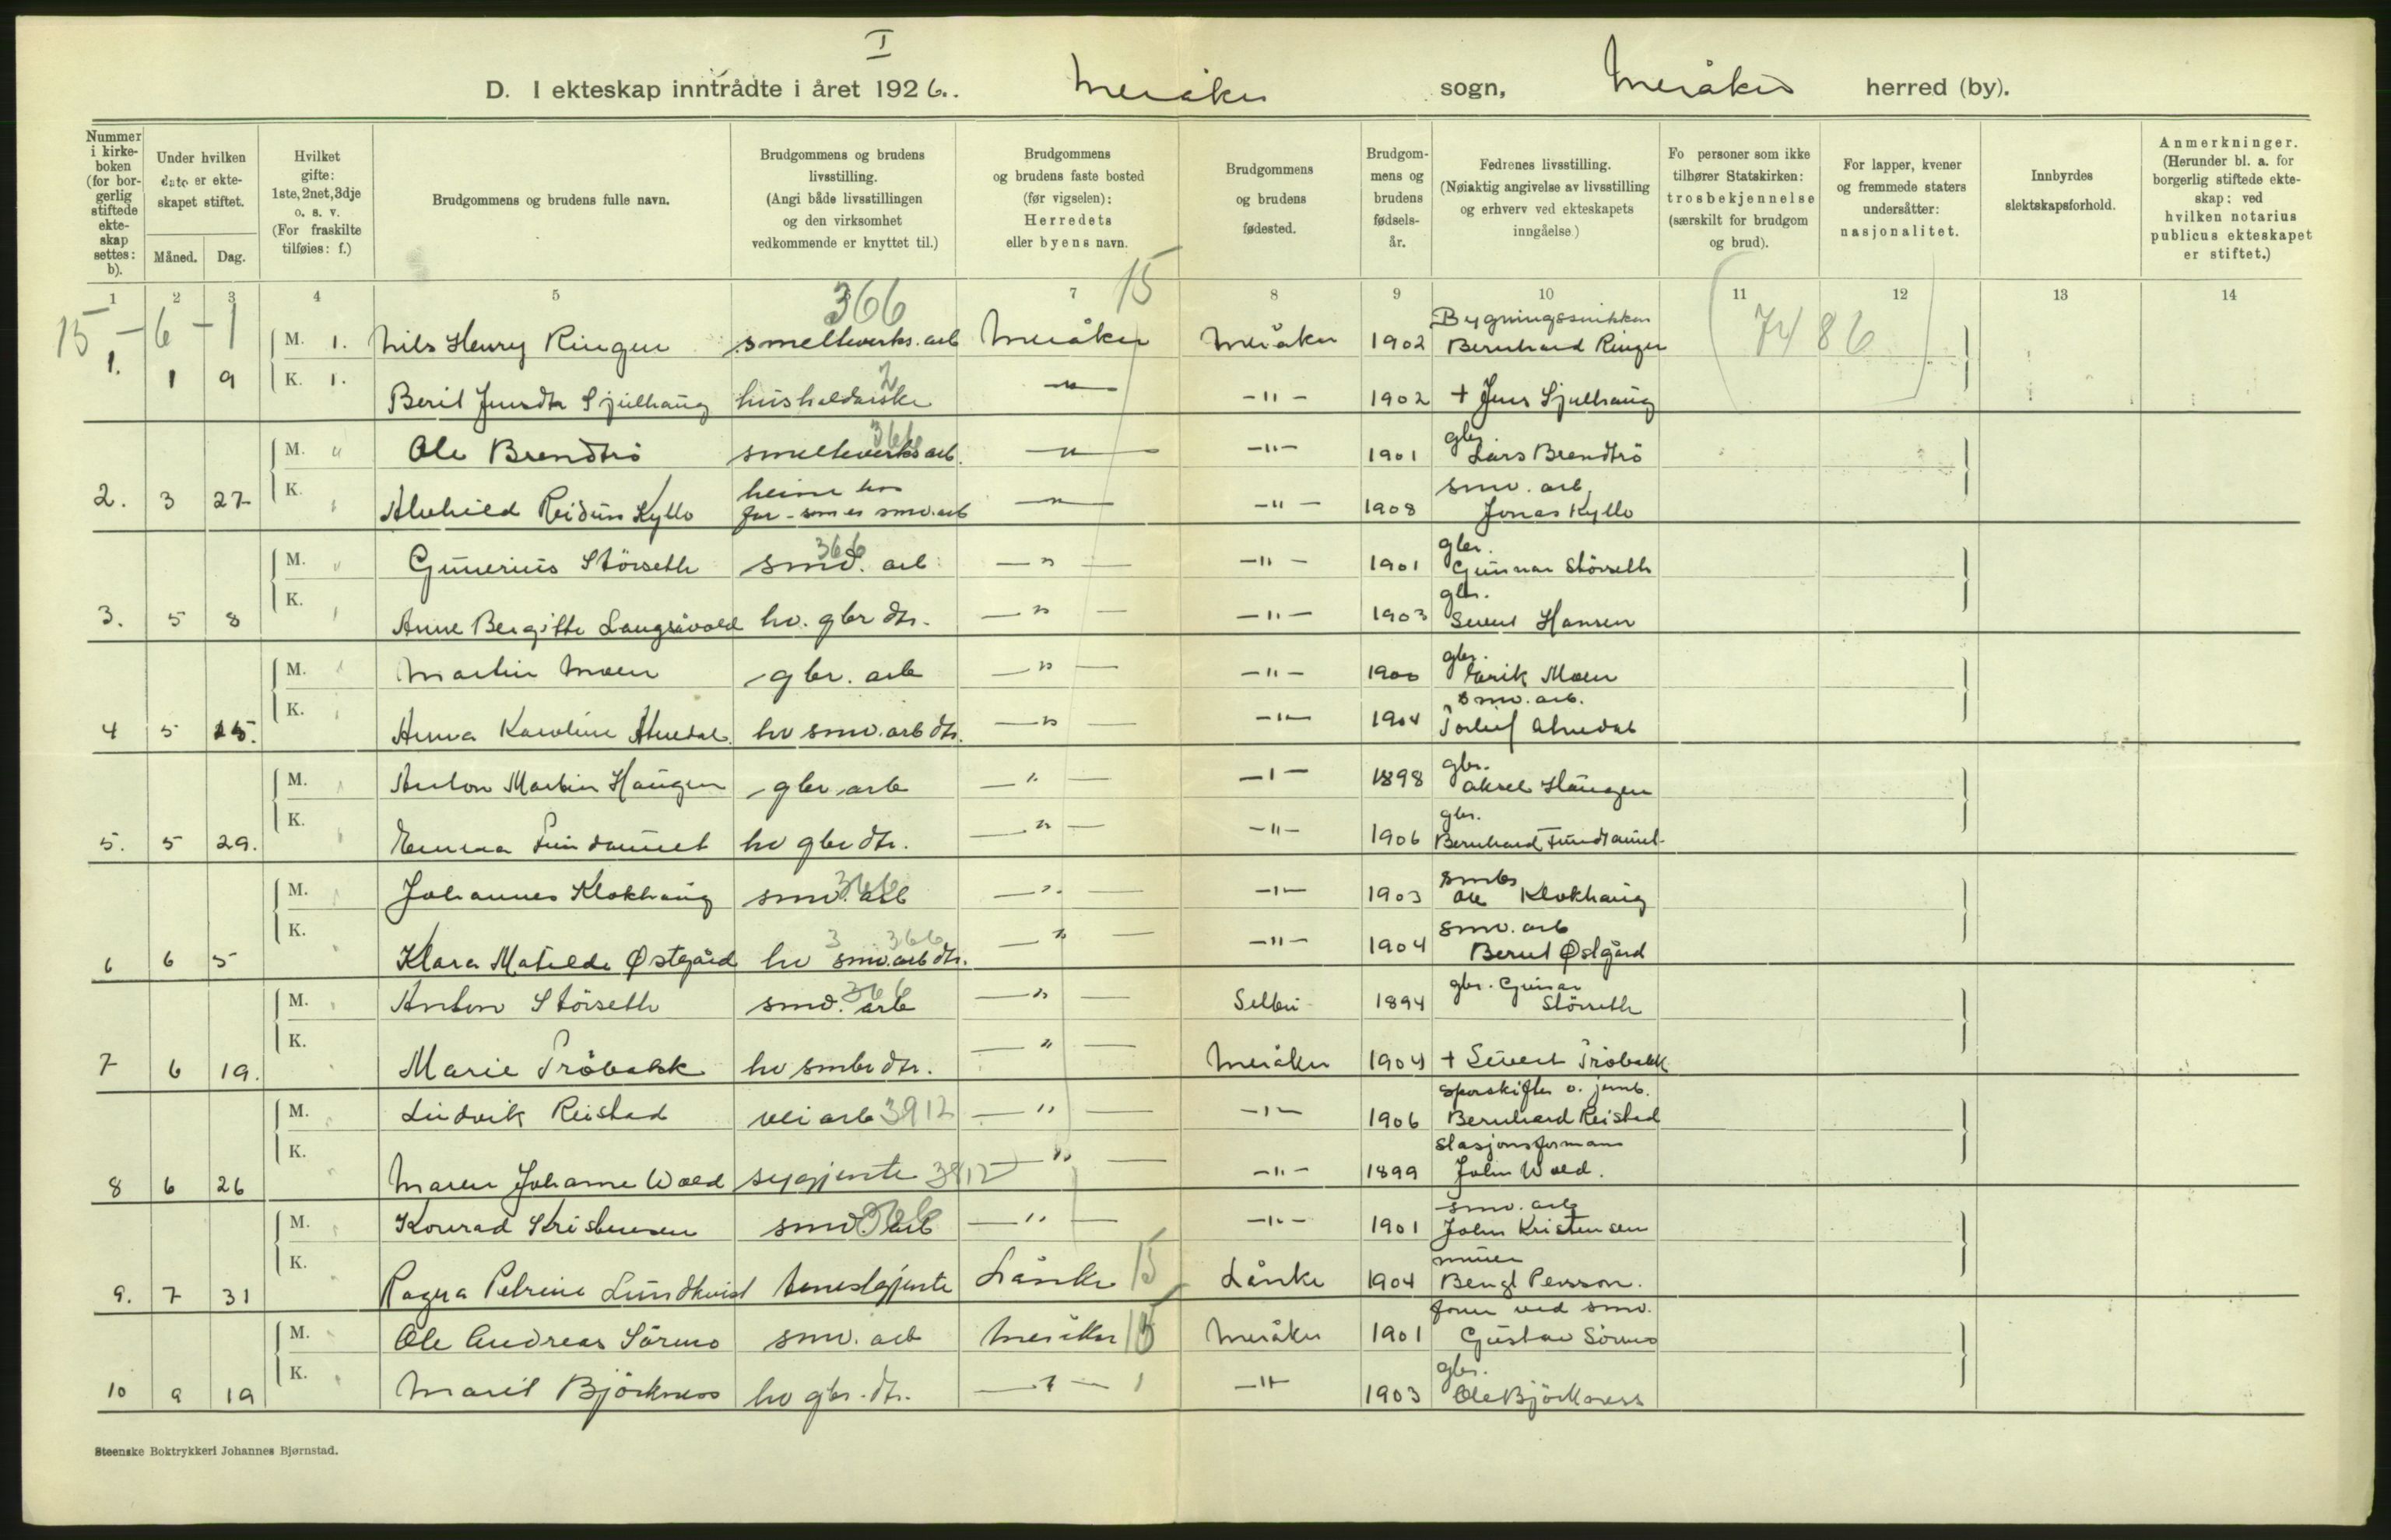 I
D. I ekteskap inntrådte i året 1926. Meråker sogn, Meråker herred (by).
Nummer i kirke-boken (for bor-gerlig stiftede ekte-skap settes: b).
Under hvilken dato er ekte-skapet stiftet.
Måned. Dag.
Hvilket gifte: 1ste, 2net, 3dje o. s. v. (For fraskilte tilføies: f.)
Brudgommens og brudens fulle navn.
Brudgommens og brudens livsstilling. (Angi både livsstillingen og den virksomhet vedkommende er knyttet til.)
Brudgommens og brudens faste bosted (før vigselen): Herredets eller byens navn.
Brudgommens og brudens fødested.
Brudgom-mens og brudens fødsels-år.
Fedrenes livsstilling. (Nøiaktig angivelse av livsstilling og erhverv ved ekteskapets inngåelse)
Fo personer som ikke tilhører Statskirken: trosbekjennelse (særskilt for brudgom og brud).
For lapper, kvener og fremmede staters undersåtter: nasjonalitet.
Innbyrdes slektskapsforhold.
Anmerkninger. (Herunder bl. a. for borgerlig stiftede ekte-skap: ved hvilken notarius publicus ekteskapet er stiftet.)
1 2 3 4 5 6 7 8 9 10 11 12 13 14
15 - 6 - 1 366 15 (7486)
Bygningssnikker
M. 1. Nils Henry Ringen smelteverks. arb Meråker Meråker 1902 Bernhard Ringen
1. 1 9 K. 1. Berit Jensdtr Sjulhaug husholderske 2 -"- -"- 1902 + Jens Sjulhaug
gbr.
M. " Ole Brendtrö smelteverks arb. 366 -"- -"- 1901 Lars Brendtrö
heime hos smv. arb.
2. 3 27 K. " Alvhild Reidun Kyllo far - som er smv. arb -"- -"- 1908 Jonas Kyllo
gbr.
M. " Gunerius Störseth smv. arb 366 -"- -"- 1901 Gunnar Störseth
gbr.
3. 5 8 K. " Anne Bergitte Langsåvold hv. gbr dtr. -"- -"- 1903 Sivert Hansen
gbr.
M. " Martin Moen gbr. arb -"- -"- 1900 Erik Moen
smv. arb.
4 5 25. K. " Anna Karoline Almedal hv smv. arb dtr. -"- -"- 1904 Torleif Almedal
gbr.
M. " Anton Martin Haugen gbr arb -"- -"- 1898 Aksel Haugen
gbr.
5. 5 29. K. " Emma Fundaunet hv gbr dtr. -"- -"- 1906 Bernhard Fundaunet
smbr
M. " Johannes Klokhaug smv. arb 366 -"- -"- 1903 Ole Klokhaug
3 366 smv. arb
6 6 5 K. " Klara Matilde Østgård hv smv. arb dtr. -"- -"- 1904 Bernt Østgård
gbr. Gunar
M. " Anton Störseth smv. arb 366 -"- Selbu 1894 Störseth
7 6 19. K. " Marie Tröbakk hv smbr dtr. -"- Meråker 1904 + Sivert Tröbakk
Sporskifter v. jernb.
M. " Ludvik Reistad vei arb 3912 -"- -"- 1906 Bernhard Reistad
Stasjonsformann
8 6 26 K. " Maren Johanne Wold sygjente 3812 -"- -"- 1899 John Wold.
smv. arb
M. " Konrad Kristensen smv. arb 366 -"- -"- 1901 John Kristensen
murer
9. 7 31 K. " Ragna Petrine Lundkvist tenestegjente Lånke 15 Lånke 1904 Bengt Persson.
form ved smv.
M. " Ole Andreas Sörmo smv. arb Meråker 15 Meråker 1901 Gustav Sörmo
gbr.
10 9 19 K. " Marit Björkness hv gbr. dtr. -"- 1 -"- 1903 Ole Björkness
Steenske Boktrykkeri Johannes Bjørnstad.